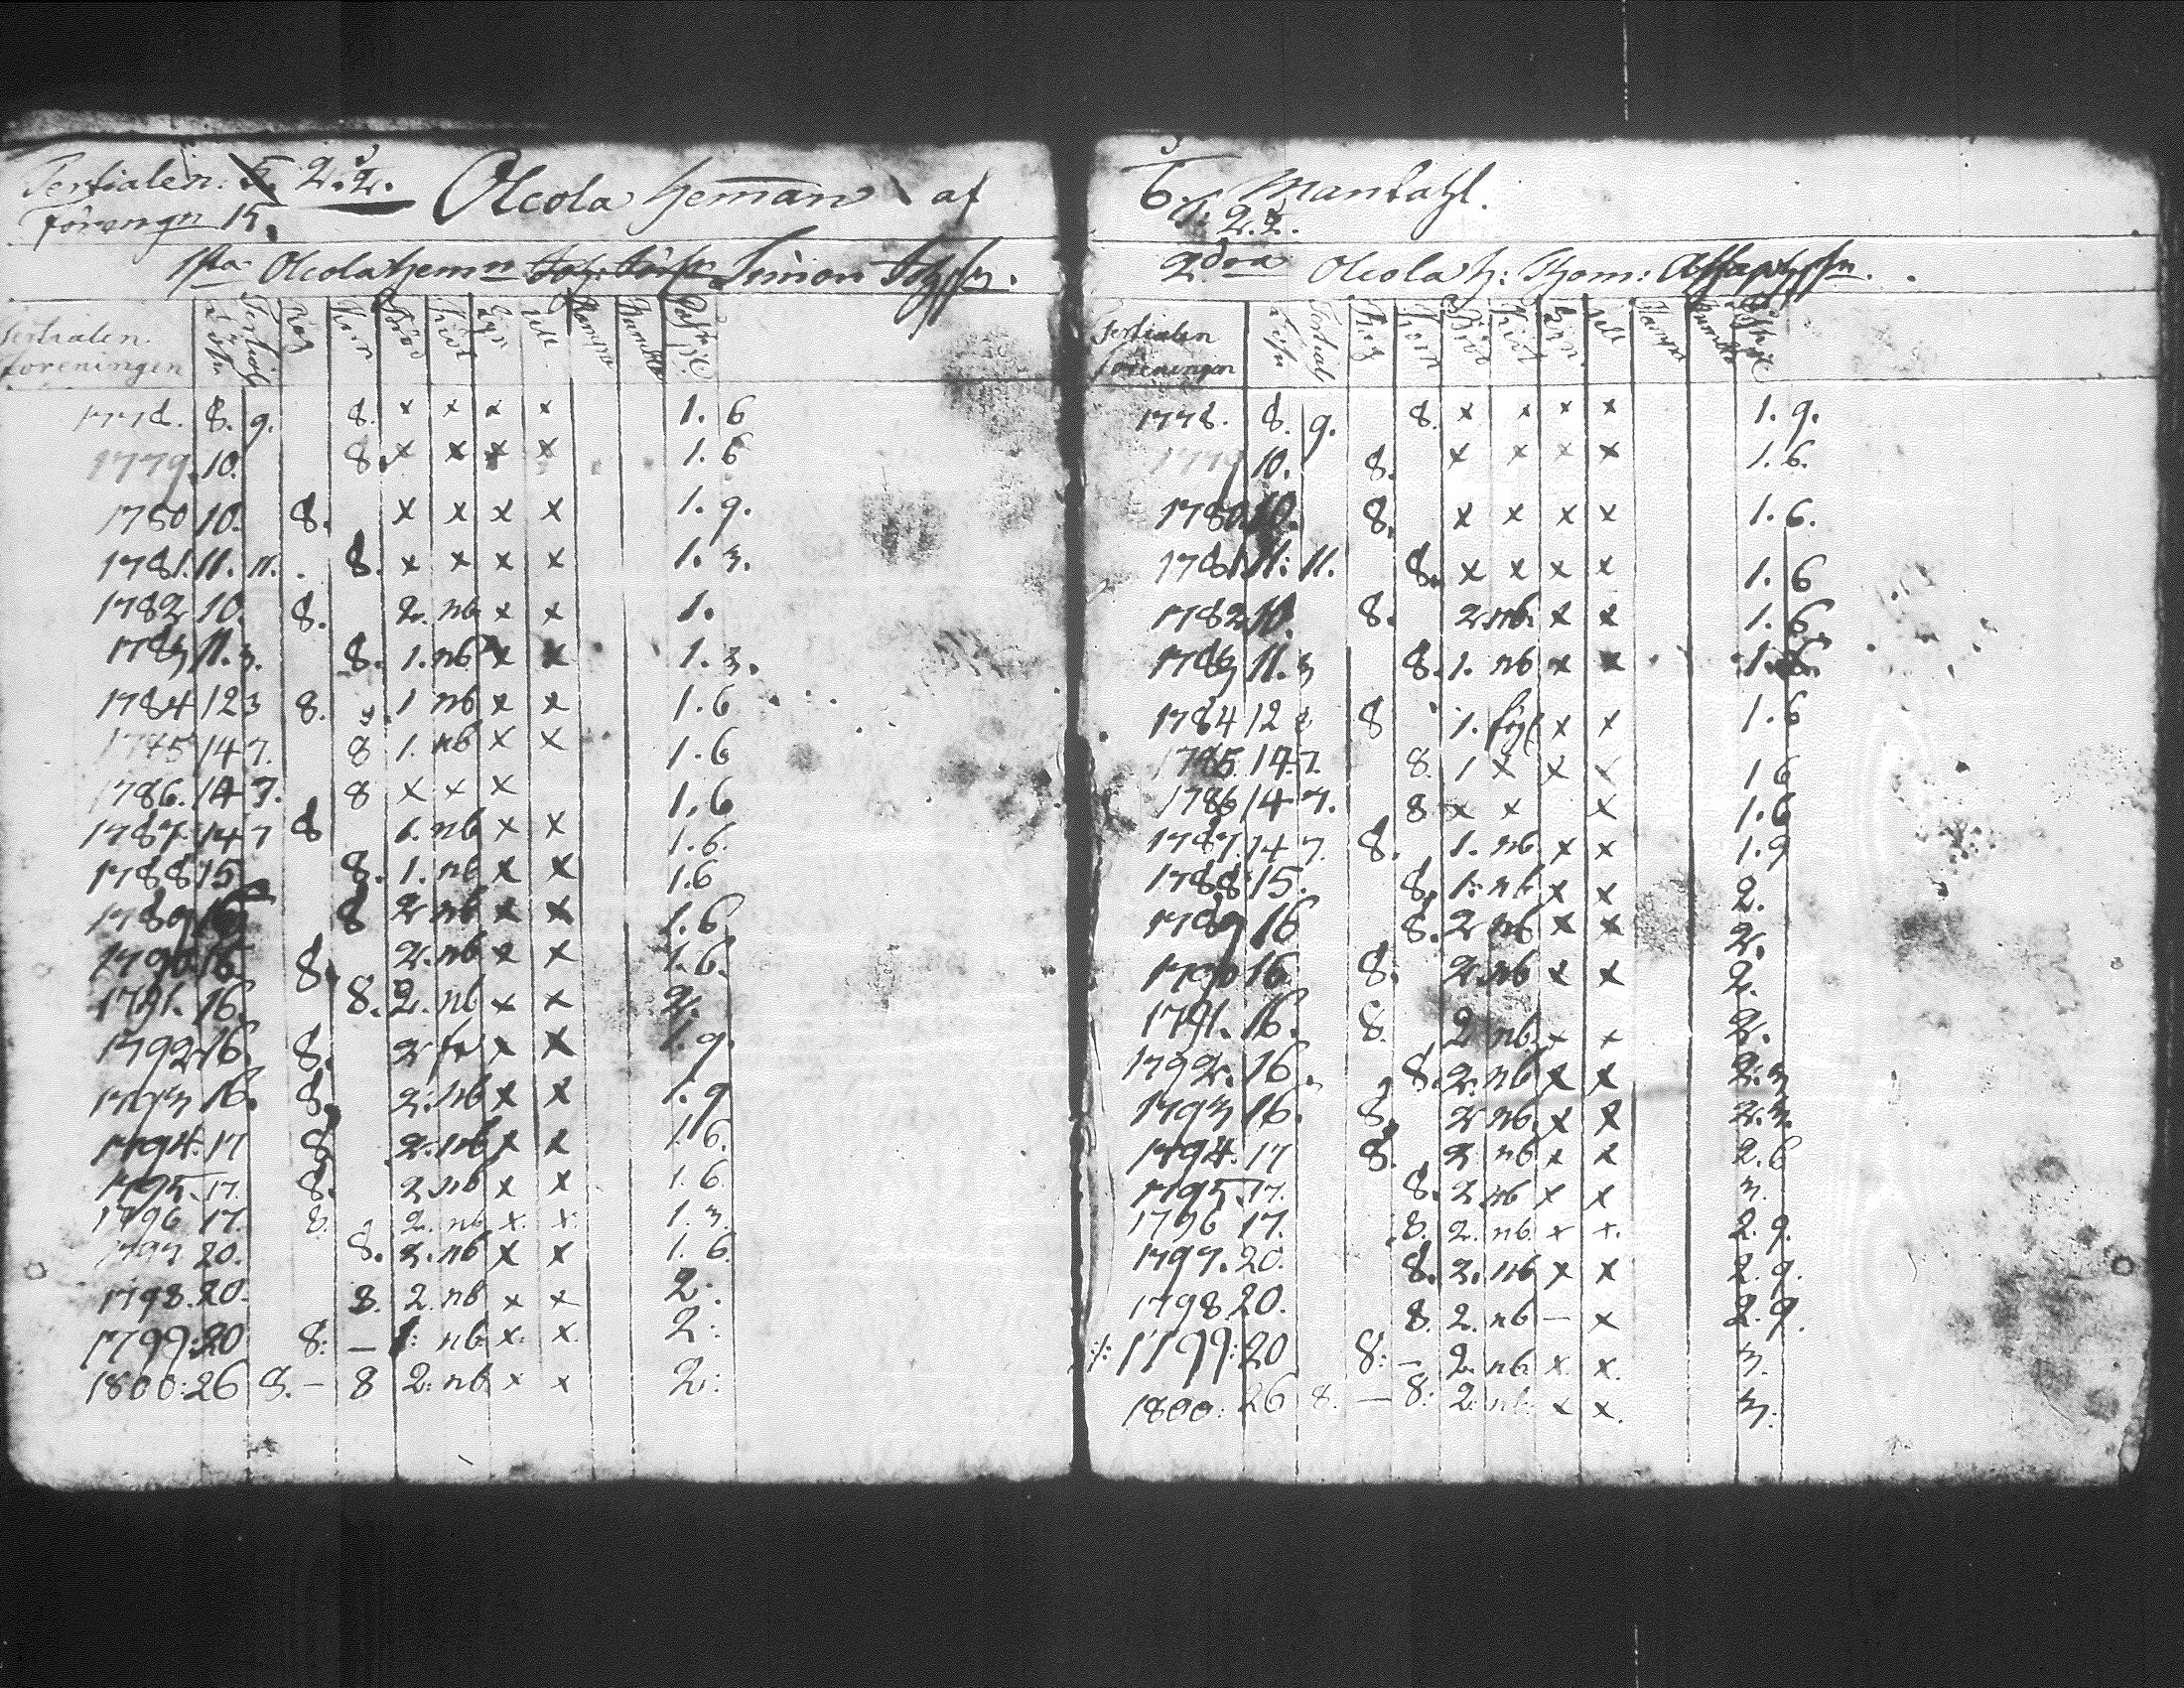 Tertialen: 5. 2.2.
förengn 15.
Olcola Heman af
1sta Olcola hemn Simon
Tertialen Råg Korn Bröd Kiöt Lijn Ull Hampa Humbla
foreningen
1778. 8. 9. 8. x x x x 1. 6
1779. 10. 8. x x x x 1. 6
1780 10. 8. x x x x 1. 9.
1781. 11. 11. 8. x x x x 1. 3.
1782 10. 8. 2. nb x x 1.
1783 11. 3. 8. 1. nb x x 1. 3.
1784 12 3 8. 1 nb x x 1. 6
1785 14 7. 8 1. nb x x 1. 6
1786. 14 7. 8 x x x 1. 6
1787. 14 7 8 1. nb x x 1. 6.
1788 15 8. 1. nb x x 1. 6
1789 16 8 2 nb x x 1. 6
1790. 16. 8. 2. nb x x 1. 6.
1791. 16. 8. 2. nb x x 2.
1792. 16. 8. 2 x x 1. 9.
1793 16. 8. 2. nb x x 1. 9
1794. 17 8 2. nb x x 1. 6.
1795. 17. 8. 2. nb x x 1. 6.
1796 17. 8. 2. nb x. x. 1. 3.
1797 20. 8. 2. nb x x 1. 6
1798. 20. 8. 2. nb x x 2.
1799: 20 8: – 1: nb x. x. 2:
1800: 26 8. – 8 2: nb x x 2:
6. Mantahl.
2.2.
2dra Olcola h: Thom:
Tertialen Råg Korn Bröd Kiöt Lijn Ull Hampa Humbla
föreningen
1778. 8. 9. 8. x x x x 1. 9.
1779 10. 8. x x x x 1. 6.
1780. 10. 8. x x x x 1. 6.
1781. 11: 11. 8. x x x x 1. 6
1782. 10. 8. 2. nb. x x 1. 6
1783 11. 3 8. 1. nb x x 1. 6.
1784 12 3 8 1. x x 1. 6
1785. 14. 7. 8. 1 x x x 1 6
1786 14 7. 8 x x x 1. 6
1787. 14 7. 8. 1. nb. x x 1. 9
1788. 15. 8. 1. nb x x 2.
1789 16 8. 2 nb x x 2.
1790 16. 8. 2. nb x x 2.
1791. 16. 8. 2 nb. x x 2.
1792. 16. 8. 2. nb x x 2. 3
1793 16. 8. 2 nb. x x 2. 3.
1794. 17 8. 2 nb x x 2. 6
1795. 17. 8. 2. nb x x 3.
1796 17. 8. 2. nb. x x. 2. 9.
1797. 20. 8. 2. nb x x 2. 9.
1798 20. 8. 2. nb – x 2. 9.
:/: 1799: 20 8: – 2. nb x x. 3.
1800: 26 8. – 8: 2. nb. x x. 3.